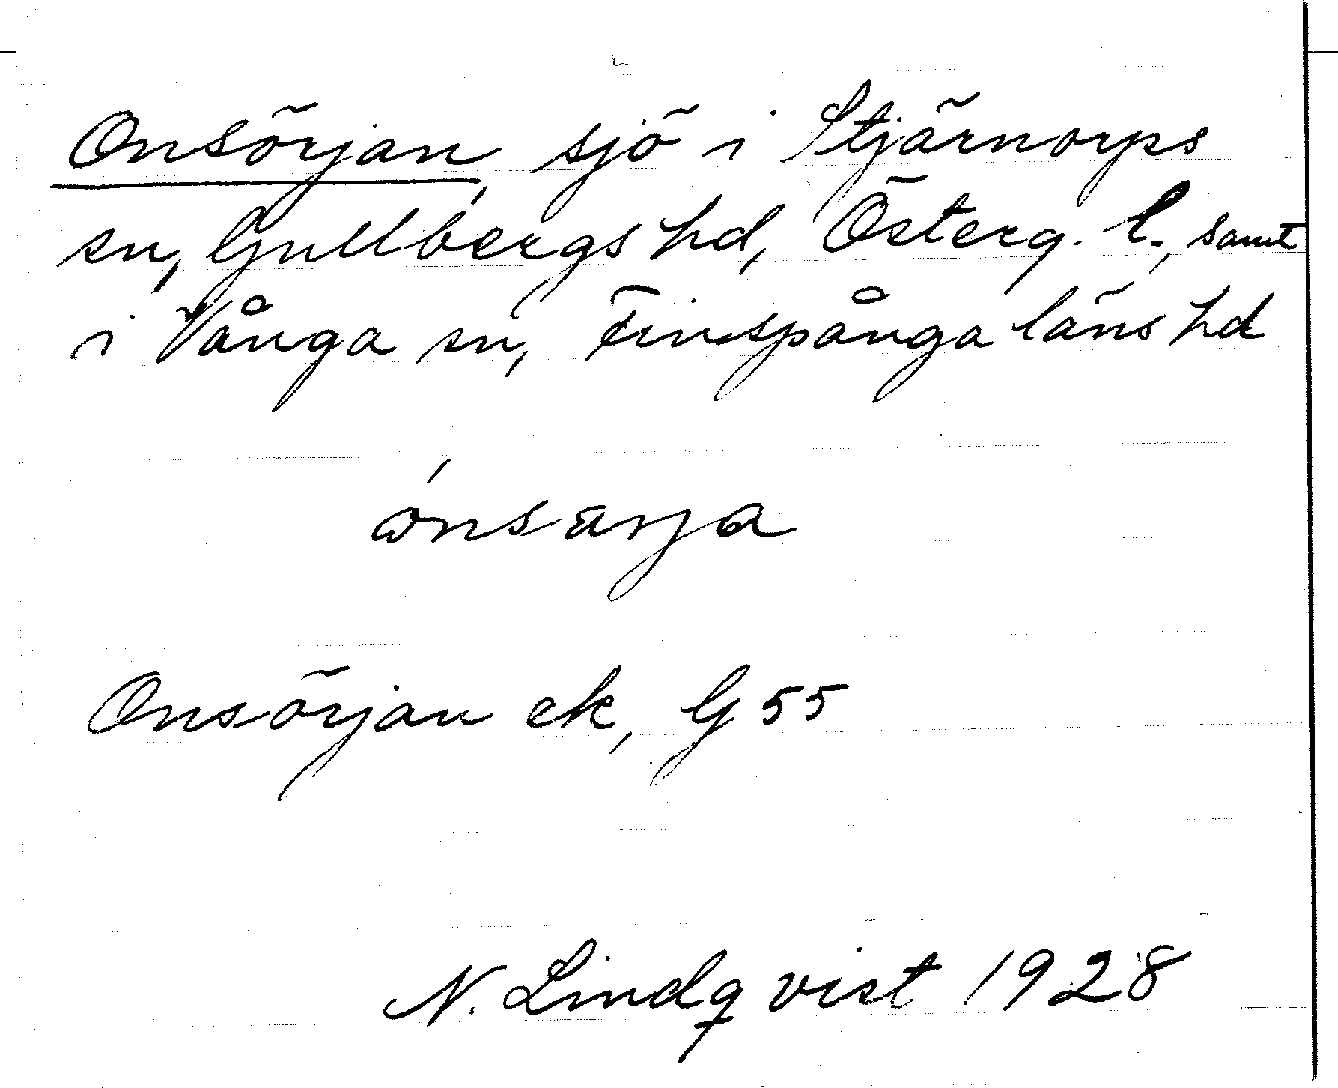 Onsörjan, sjö i Stjärnorps
sn, Gullbergs hd, Österg. l., samt
i Vånga sn, Finspånga läns hd
Onsörjan ek, G 55
N. Lindqvist 1928